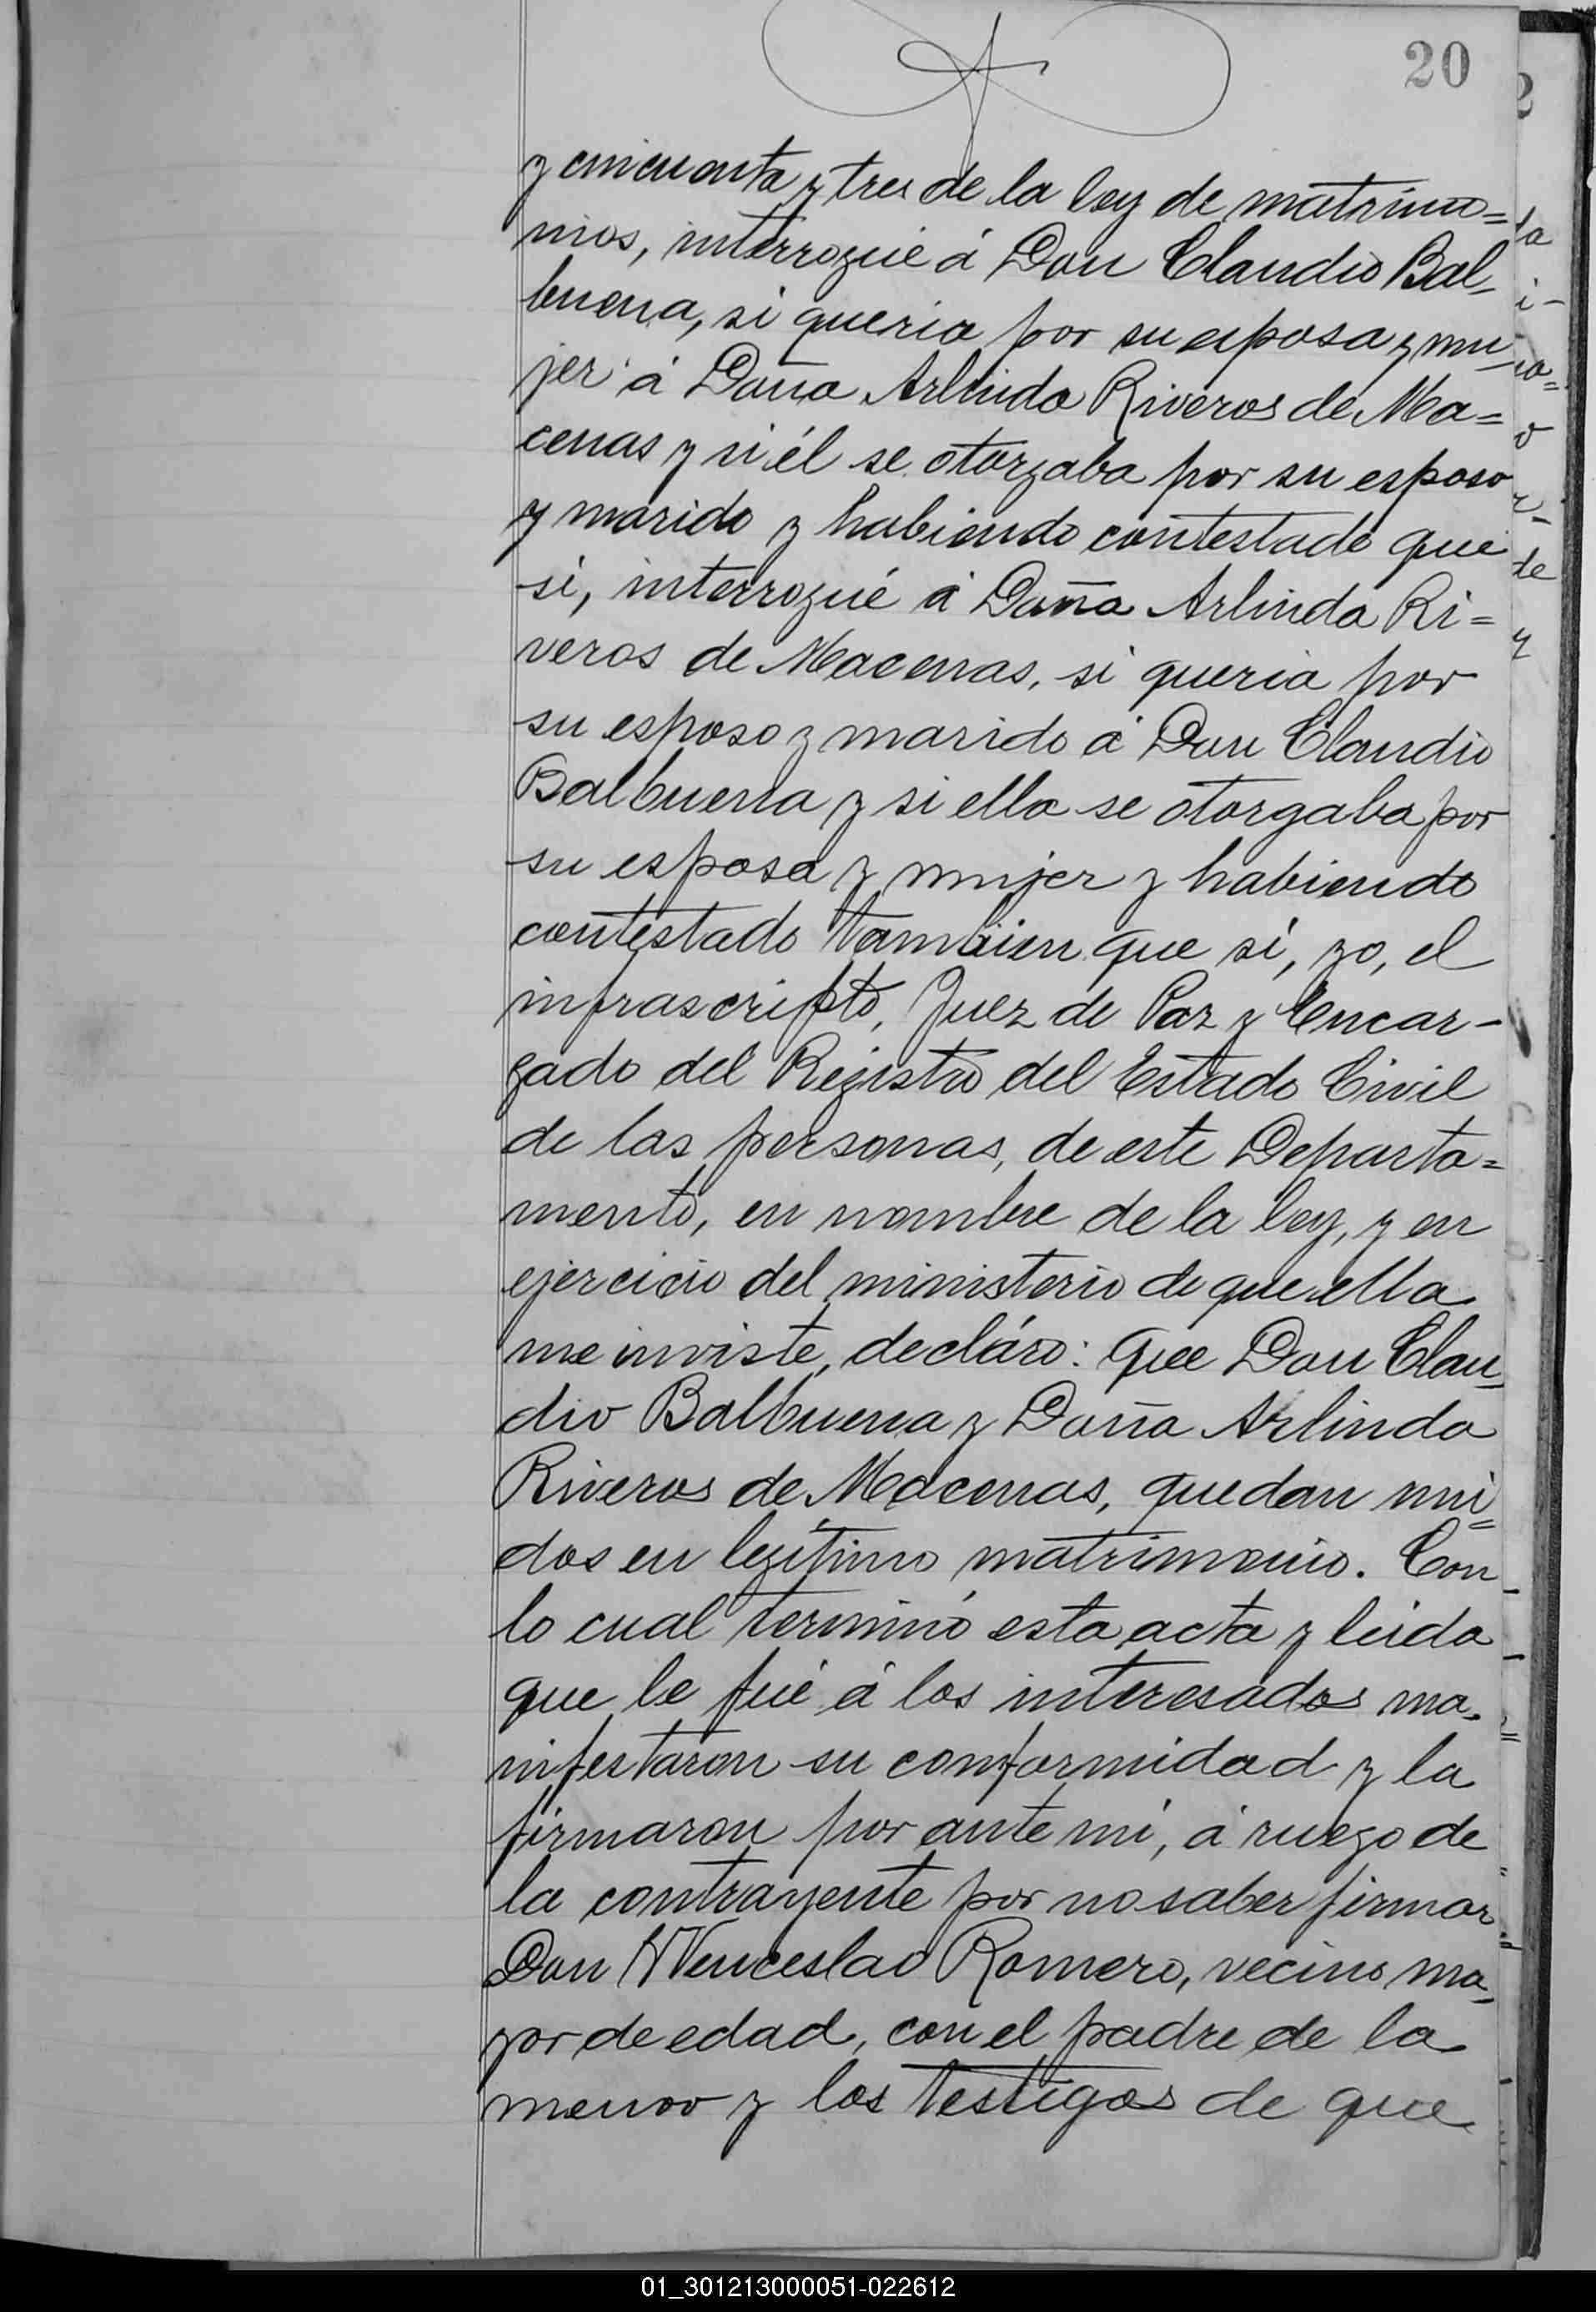 20
y cincuenta y tres de la ley de matrimo=
nios, interrogué á Don Claudio Bal-
buena, si queria por su esposa y mu-
jer á Doña Arlinda Riveros de Ma=
cenas y si él se otorgaba por su esposo
y marido y habiendo contestado que
si, interrogué á Doña Arlinda Ri=
veros de Macenas, si queria por
su esposo y marido á Don Claudio
Balbuena y si ella se otorgaba por
su esposa y mujer y habiendo
contestado tambien que si, yo, el
infrascripto, Juez de Paz y Encar-
gado del Registro del Estado Civil
de las personas, de este Departa=
mento, en nombre de la ley, y en
ejercicio del ministerio de que ella
me inviste, decláro: que Don Clau-
dio Balbuena y Doña Arlinda
Riveros de Macenas, quedan uni=
dos en legítimo matrimonio. Con
lo cual terminó esta acta y leida
que le fué á los interesados ma-
nifestaron su conformidad y la
firmaron por ante mi, á ruego de
la contrayente por no saber firmar
Don Wenceslao Romero, vecino ma-
yor de edad, con el padre de la
menor y los testigos de que
01_301213000051-022612